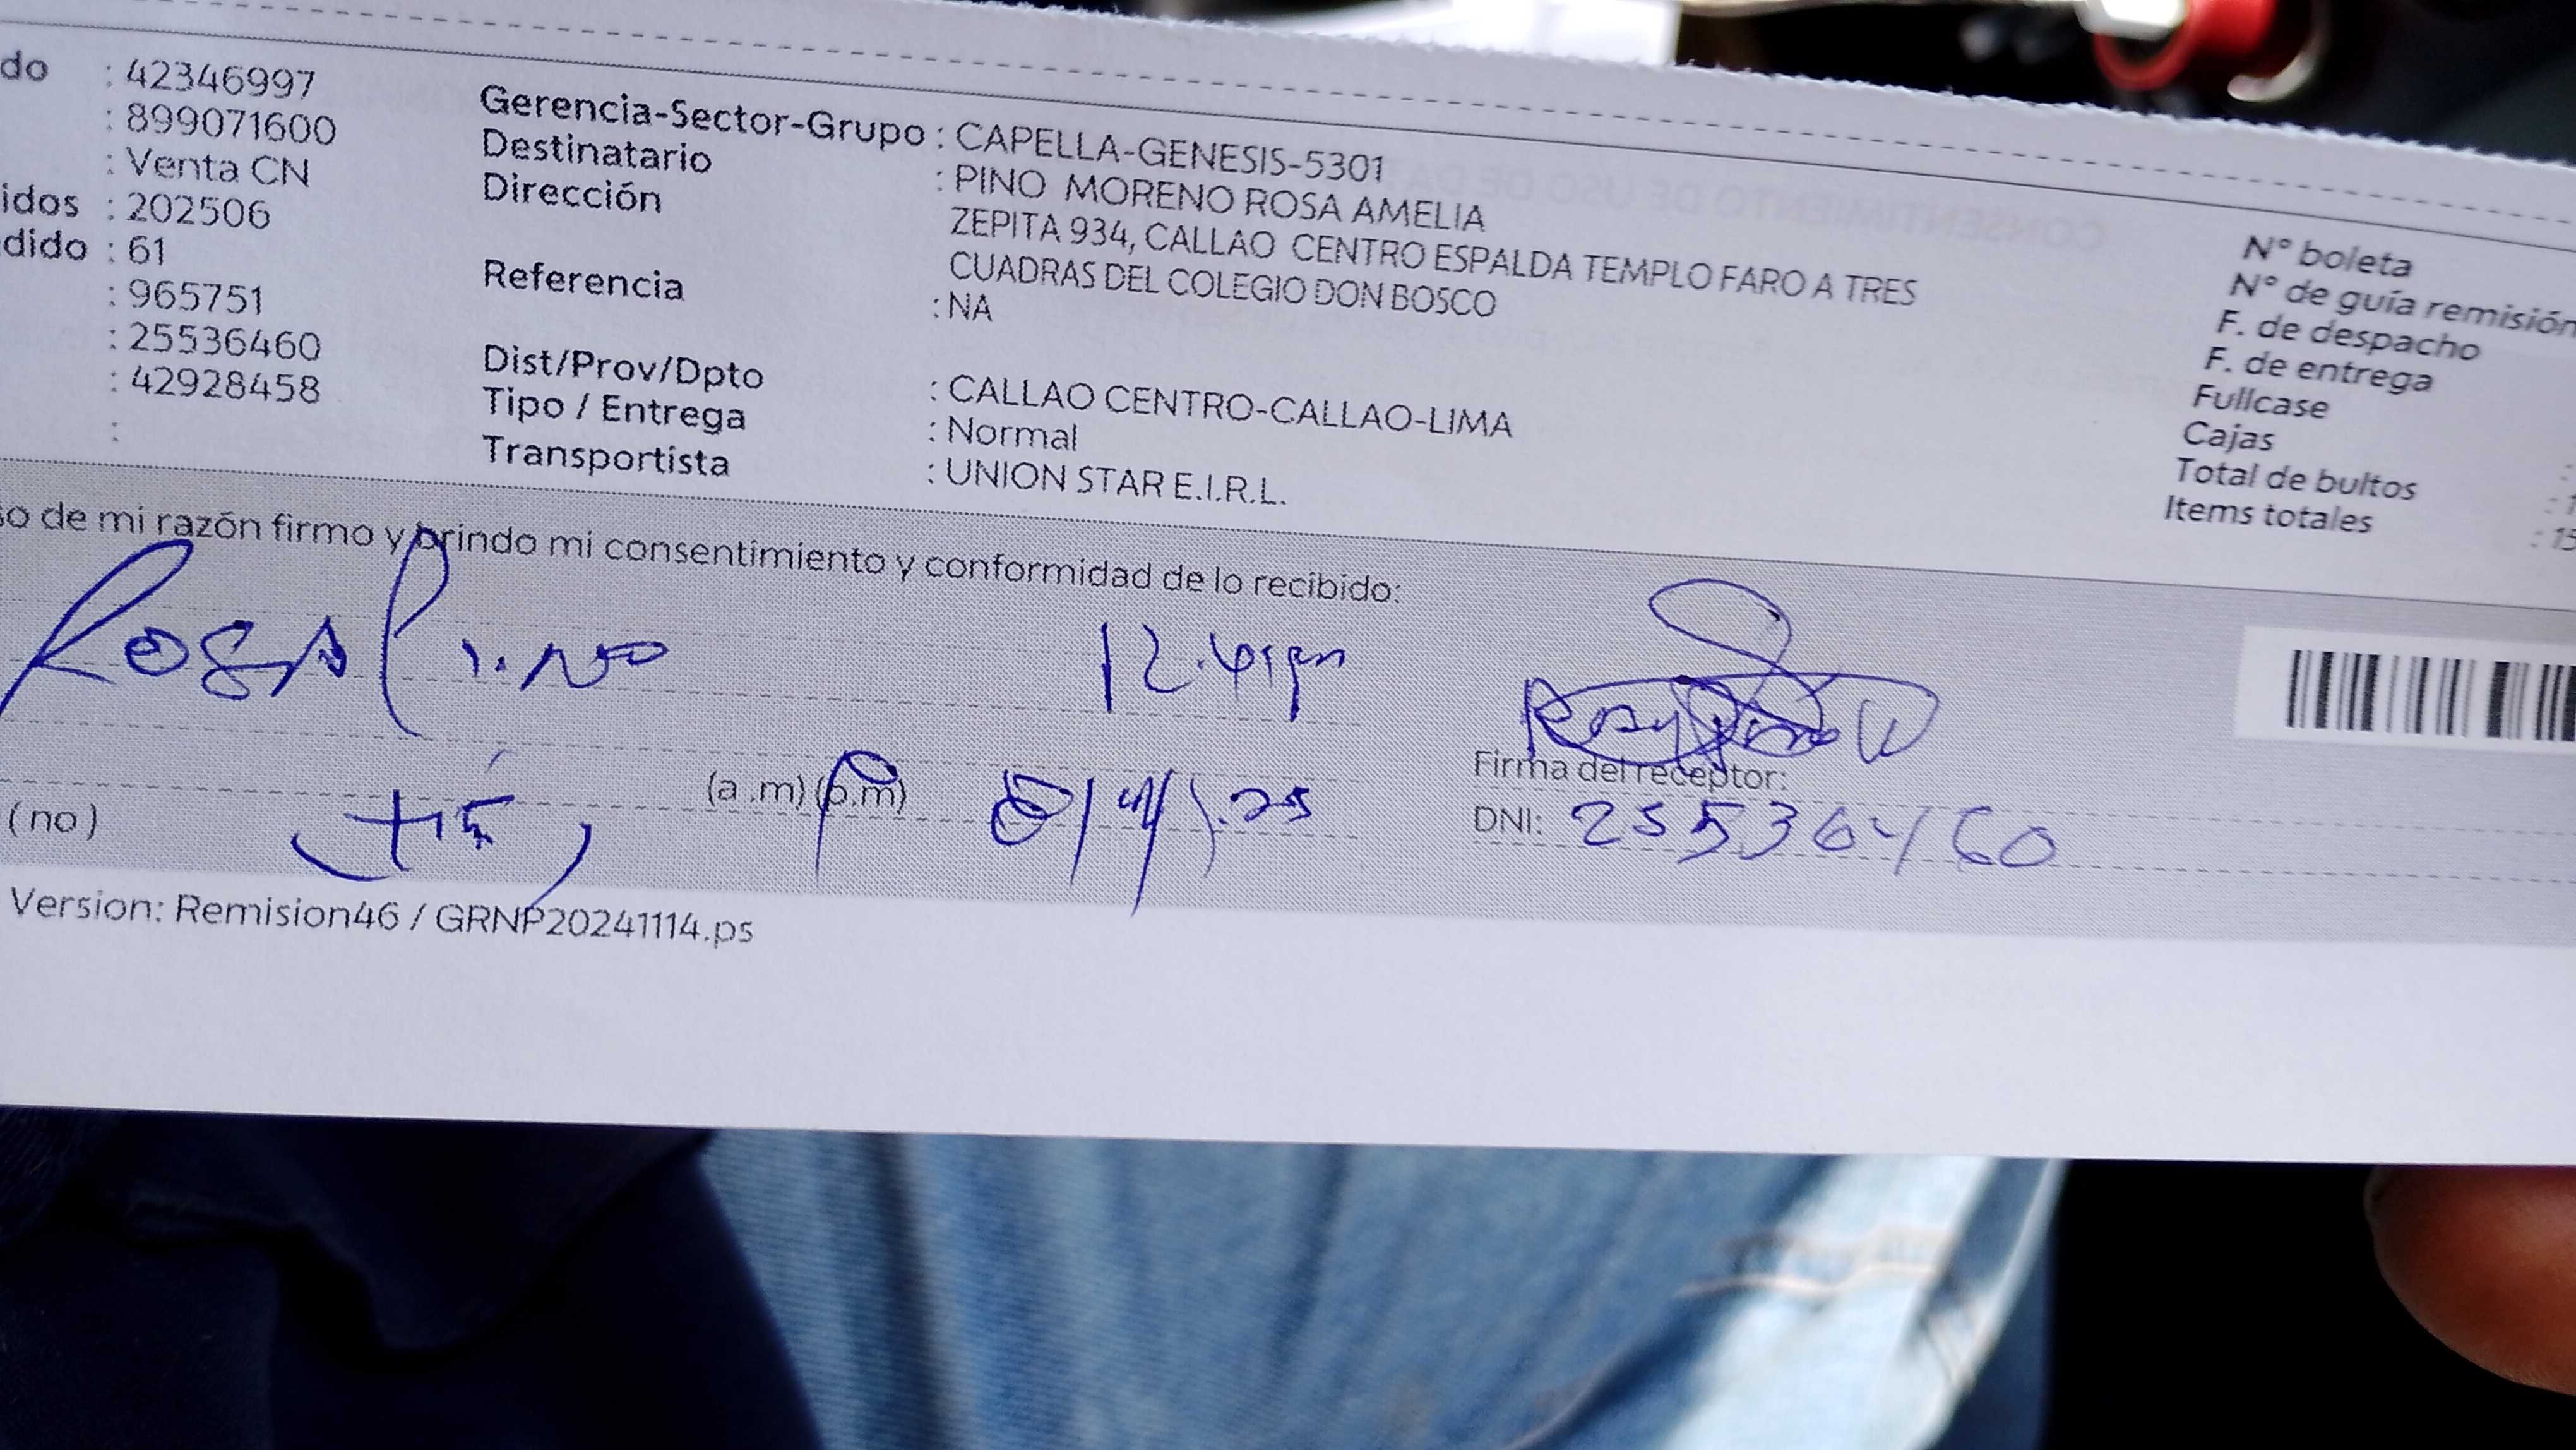 do : 42346997
: 899071600
: Venta CN
idos : 202506
dido : 61
: 965751
: 25536460
: 42928458
:
Gerencia-Sector-Grupo : CAPELLA-GENESIS-5301
Destinatario : PINO MORENO ROSA AMELIA
Dirección ZEPITA 934, CALLAO CENTRO ESPALDA TEMPLO FARO A TRES
CUADRAS DEL COLEGIO DON BOSCO
Referencia : NA
Dist/Prov/Dpto : CALLAO CENTRO-CALLAO-LIMA
Tipo / Entrega : Normal
Transportista : UNION STAR E.I.R.L.
N° boleta
N° de guía remisión
F. de despacho
F. de entrega
Fullcase
Cajas
Total de bultos : 1
Items totales : 15
so de mi razón firmo y brindo mi consentimiento y conformidad de lo recibido:
ROSA Pino
Firma del receptor:
(no) (a.m) (p.m) DNI: 25536460
Version: Remision46 / GRNP20241114.ps